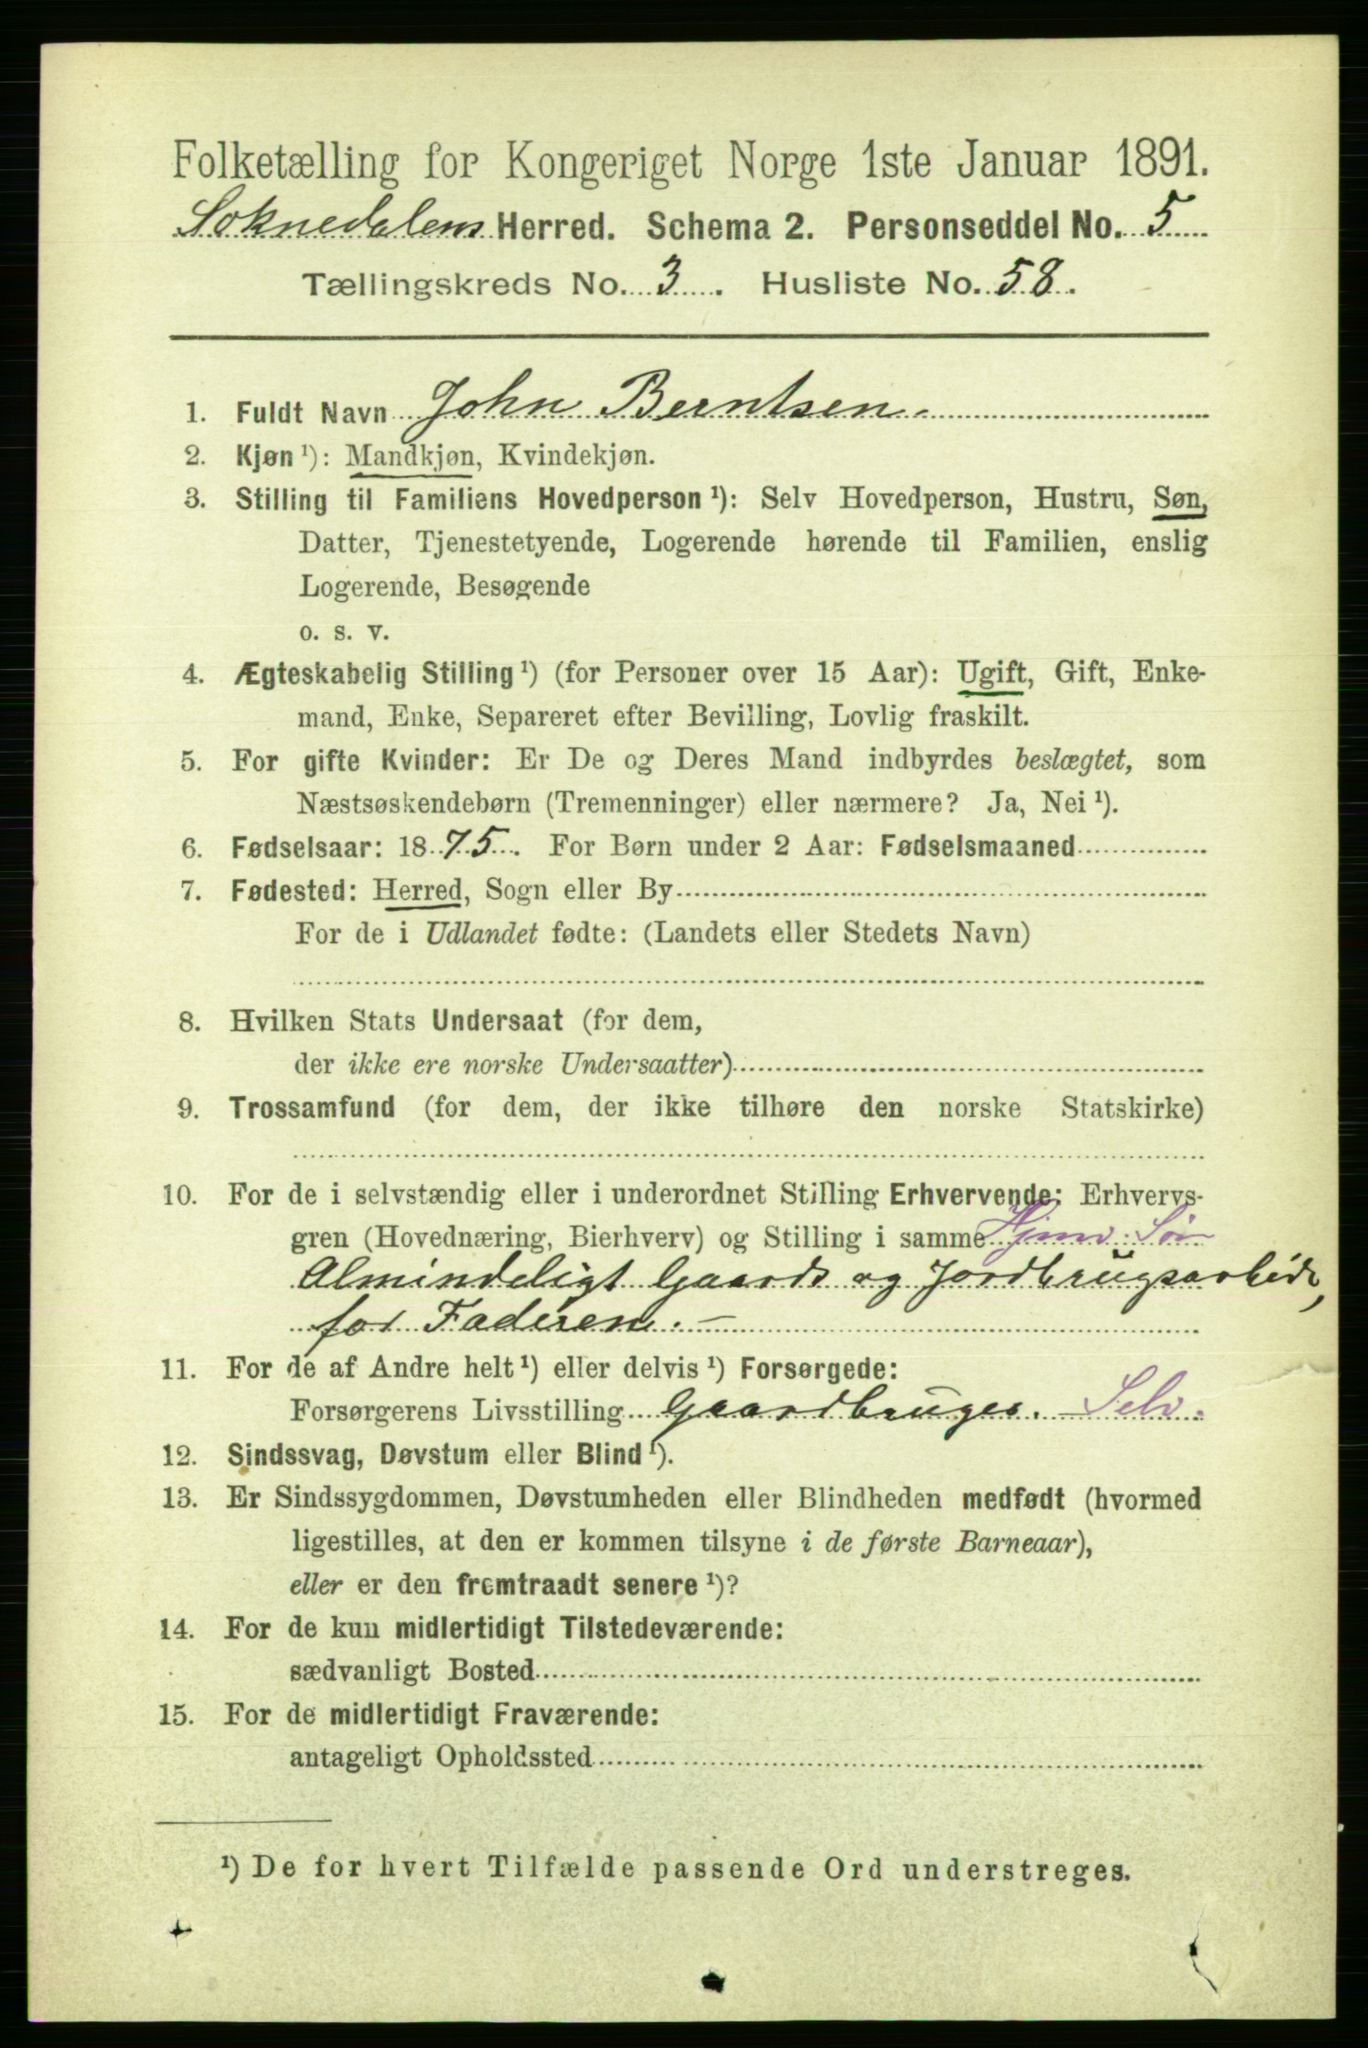 Folketælling for Kongeriget Norge 1ste Januar 1891.
Soknedalens Herred. Schema 2. Personseddel No. 5
Tællingskreds No. 3. Husliste No. 58.
1. Fuldt Navn John Berntsen.
2. Kjøn ¹): Mandkjøn, Kvindekjøn.
3. Stilling til Familiens Hovedperson ¹): Selv Hovedperson, Hustru, Søn,
Datter, Tjenestetyende, Logerende hørende til Familien, enslig
Logerende, Besøgende
o. s. v.
4. Ægteskabelig Stilling ¹) (for Personer over 15 Aar): Ugift, Gift, Enke-
mand, Enke, Separeret efter Bevilling, Lovlig fraskilt.
5. For gifte Kvinder: Er De og Deres Mand indbyrdes beslægtet, som
Næstsøskendebørn (Tremenninger) eller nærmere? Ja, Nei ¹).
6. Fødselsaar: 1875. For Børn under 2 Aar: Fødselsmaaned
7. Fødested: Herred, Sogn eller By
For de i Udlandet fødte: (Landets eller Stedets Navn)
8. Hvilken Stats Undersaat (for dem,
der ikke ere norske Undersaatter)
9. Trossamfund (for dem, der ikke tilhøre den norske Statskirke)
10. For de i selvstændig eller i underordnet Stilling Erhvervende: Erhvervs-
gren (Hovednæring, Bierhverv) og Stilling i samme
Almindeligt Gaards og Jordbrugsarbeide,
for Faderen. –
11. For de af Andre helt ¹) eller delvis ¹) Forsørgede:
Forsørgerens Livsstilling Gaardbruger. Selv.
12. Sindssvag, Døvstum eller Blind ¹).
13. Er Sindssygdommen, Døvstumheden eller Blindheden medfødt (hvormed
ligestilles, at den er kommen tilsyne i de første Barneaar),
eller er den fremtraadt senere ¹)?
14. For de kun midlertidigt Tilstedeværende:
sædvanligt Bosted
15. For de midlertidigt Fraværende:
antageligt Opholdssted
¹) De for hvert Tilfælde passende Ord understreges.